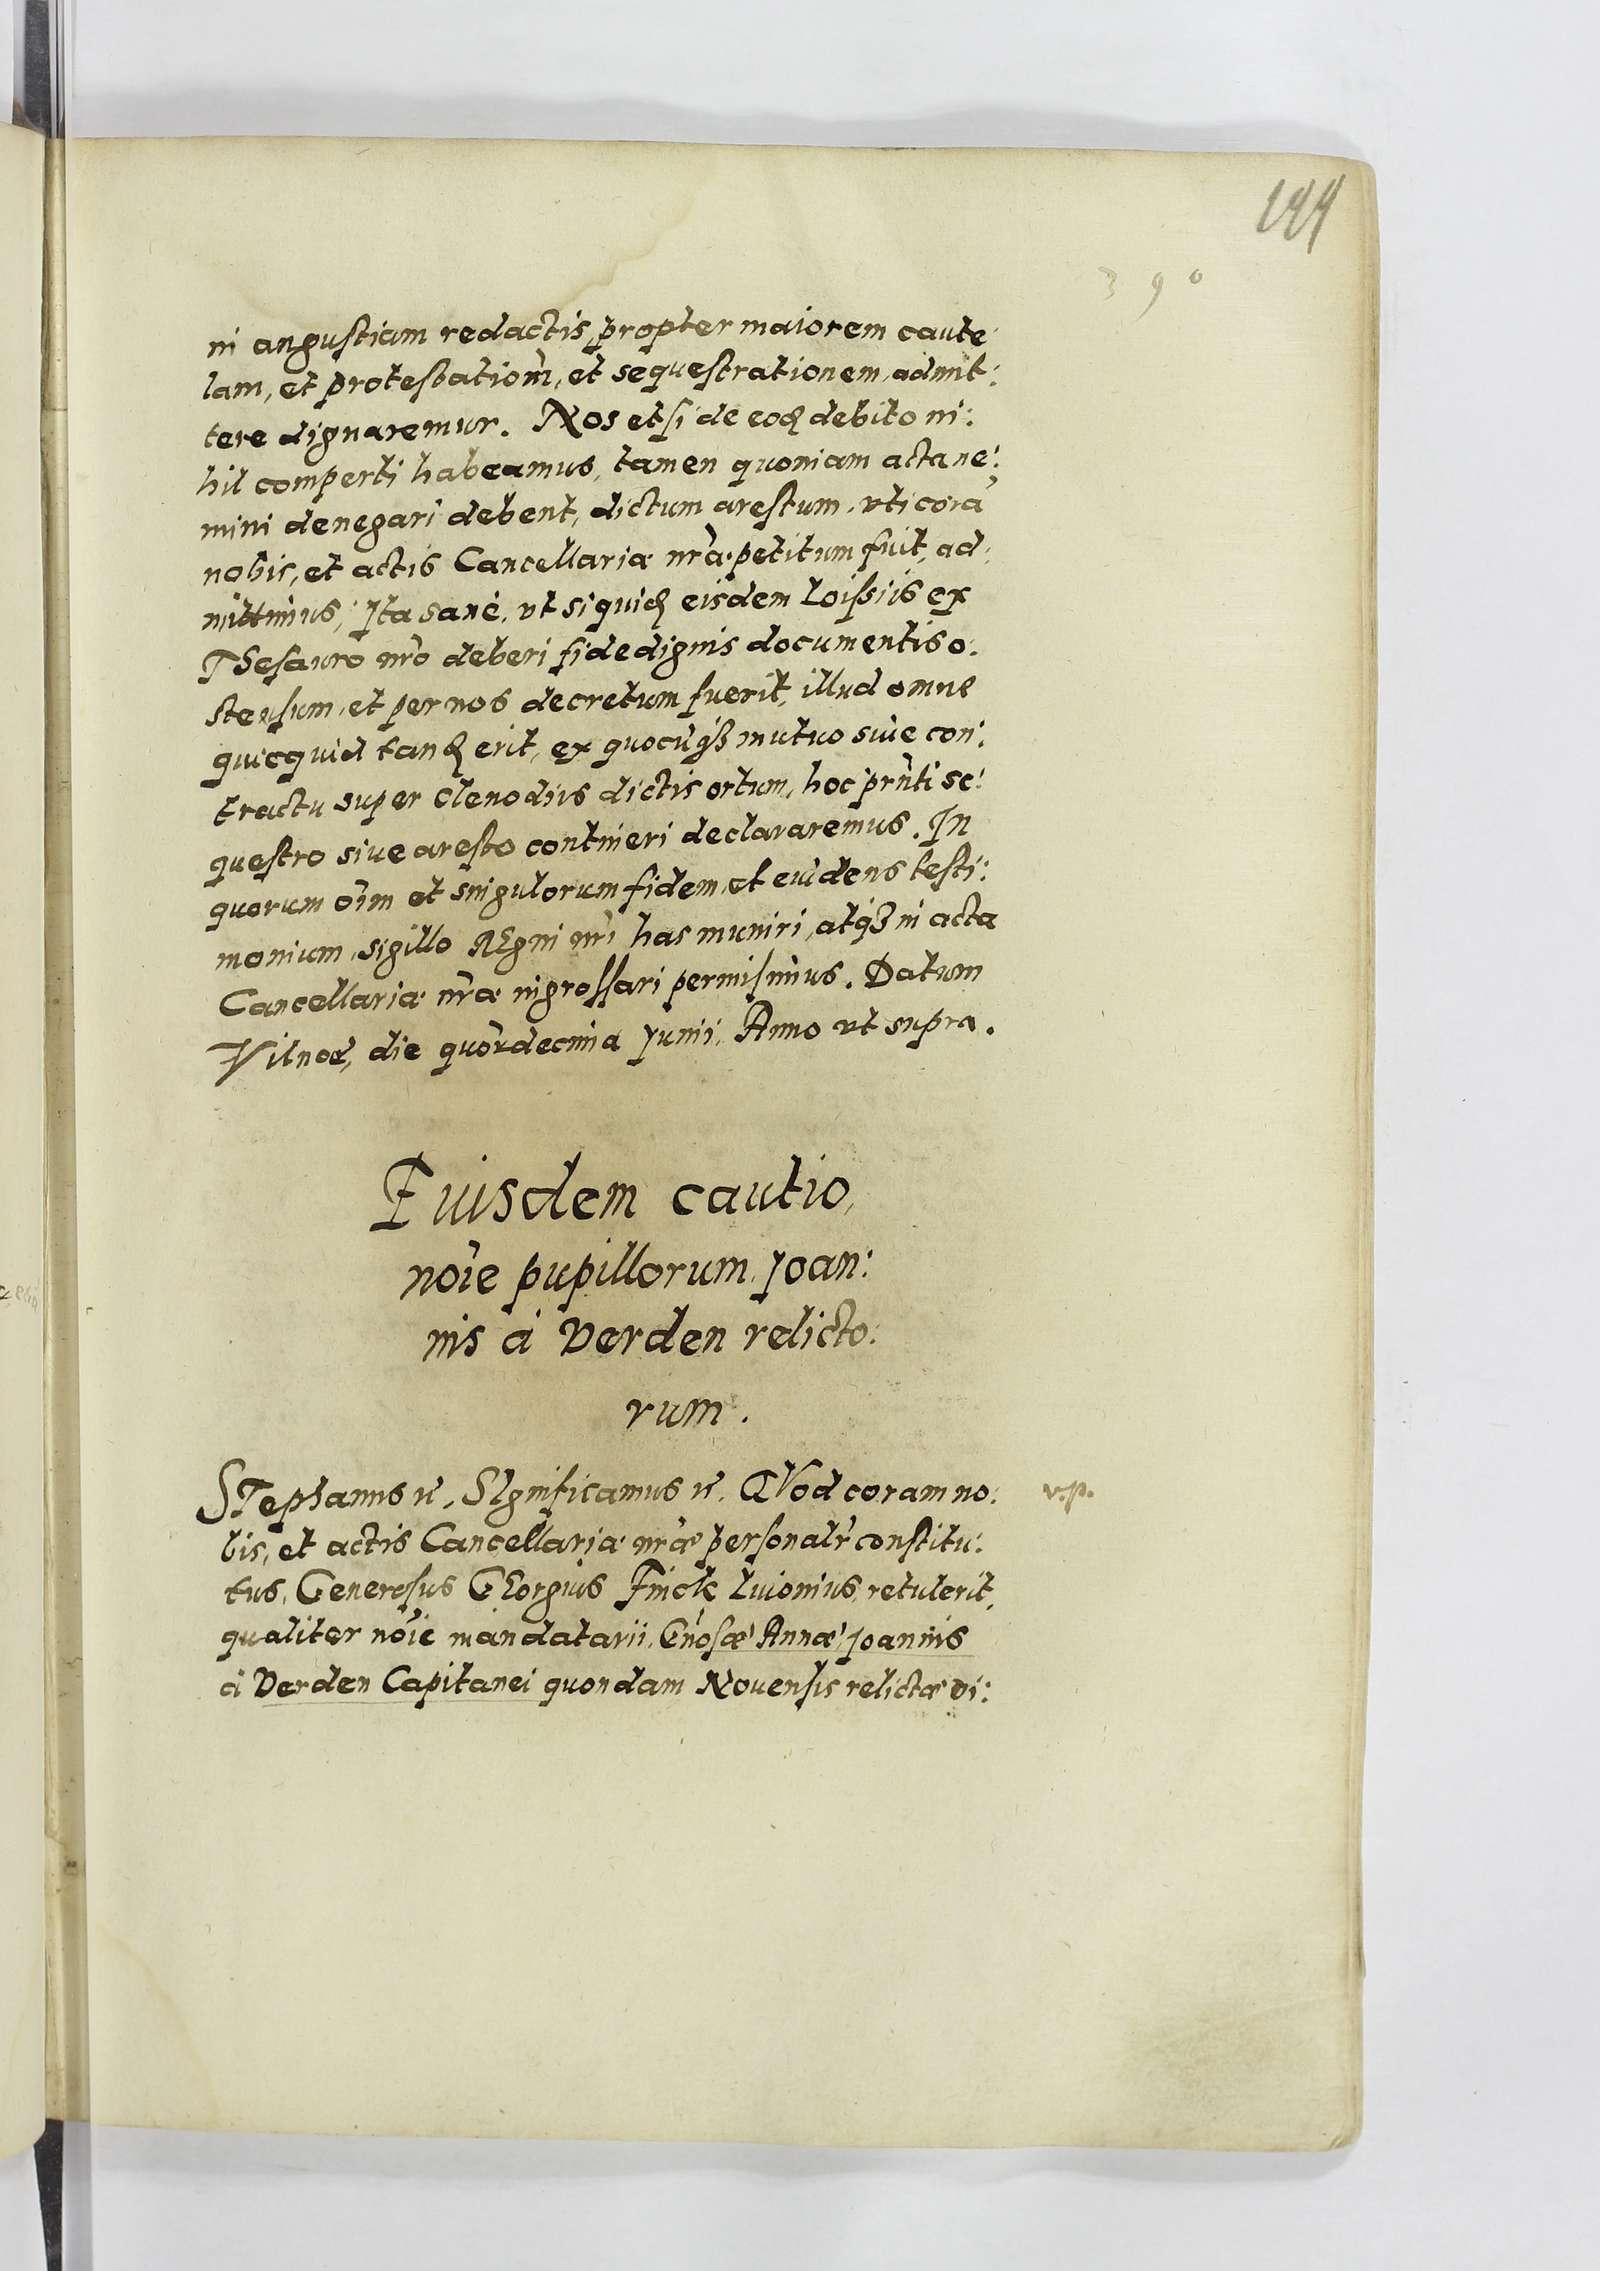 199
390
in angustiam redactis, propter maiorem caute
lam, et protestationẽ, et sequestrationem, admit:
tere dignaremur. Nos etsi de eoq̃ debito ni:
hil comperti habeamus, tamen quoniam acta ne:
mini denegari debent, dictum arestum, vti corã
nobis, et actis Cancellariæ nr̃æ petitum fuit, ad:
mittimus, Ita sanè, vt si quiq̃ eisdem Loissiis ex
THesauro nr̃o deberi fide dignis documentis o:
stensum, et per nos decretum fuerit, illud omne
quicquid tanq̃ erit, ex quocũq3 mutuo siue con:
tractu super Clenodiis dictis ortum, hoc pr̃nti se:
questro siue aresto contineri declararemus. In
quorum oĩm et singulorum fidem, et euidens testi:
monium, sigillo REgni nr̃i has muniri, atq3 in acta
Cancellariæ nr̃æ ingrossari permisimus. Datum
Vilnæ, die quar̃decima Junii, Anno vt supra.
Eiusdem cautio,
noĩe pupillorum, Joan:
nis à Verden relicto:
rum.
STephanus rc, SIgnificamus rc. QVod coram no:
v.p.
bis, et actis Cancellariæ nr̃æ personalr̃ constitu:
tus, Generosus GEorgius Finck Liuonius, retulerit,
qualiter noĩe mandatarii, Gñosæ Annæ, Joannis
à Verden Capitanei quondam Nouensis relictæ vi: